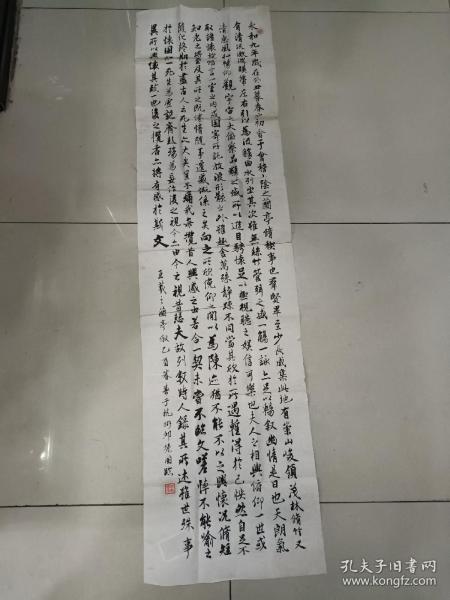 永和九年歲在癸丑暮春之初會于會稽山陰之蘭亭脩禊事也羣賢畢至少長咸集此地有崇山峻領茂林脩竹又
有清流激湍暎帶左右引以為流觴曲水列坐其次雖無絲竹管弦之盛一觴一詠亦足以暢敘幽情是日也天朗氣
清惠風和暢仰觀宇宙之大俯察品類之盛所以遊目騁懷足以極視聽之娛信可樂也夫人之相與俯仰一世或
取諸懷抱悟言一室之內或因寄所託放浪形骸之外雖趣舍萬殊靜躁不同當其欣於所遇暫得於己怏然自足不
知老之將至及其所之既惓情隨事遷感慨係之矣向之所欣俛仰之間以為陳迹猶不能不以之興懷況脩短
隨化終期於盡古人云死生亦大矣豈不痛哉每攬昔人興感之由若合一契未嘗不臨文嗟悼不能喻之
於懷固知一死生為虛誕齊彭殤為妄作後之視今亦由今之視昔悲夫故列敘時人錄其所述雖世殊事
異所以興懷其致一也後之攬者亦將有感於斯文
王羲之蘭亭敘
孔夫子旧书网